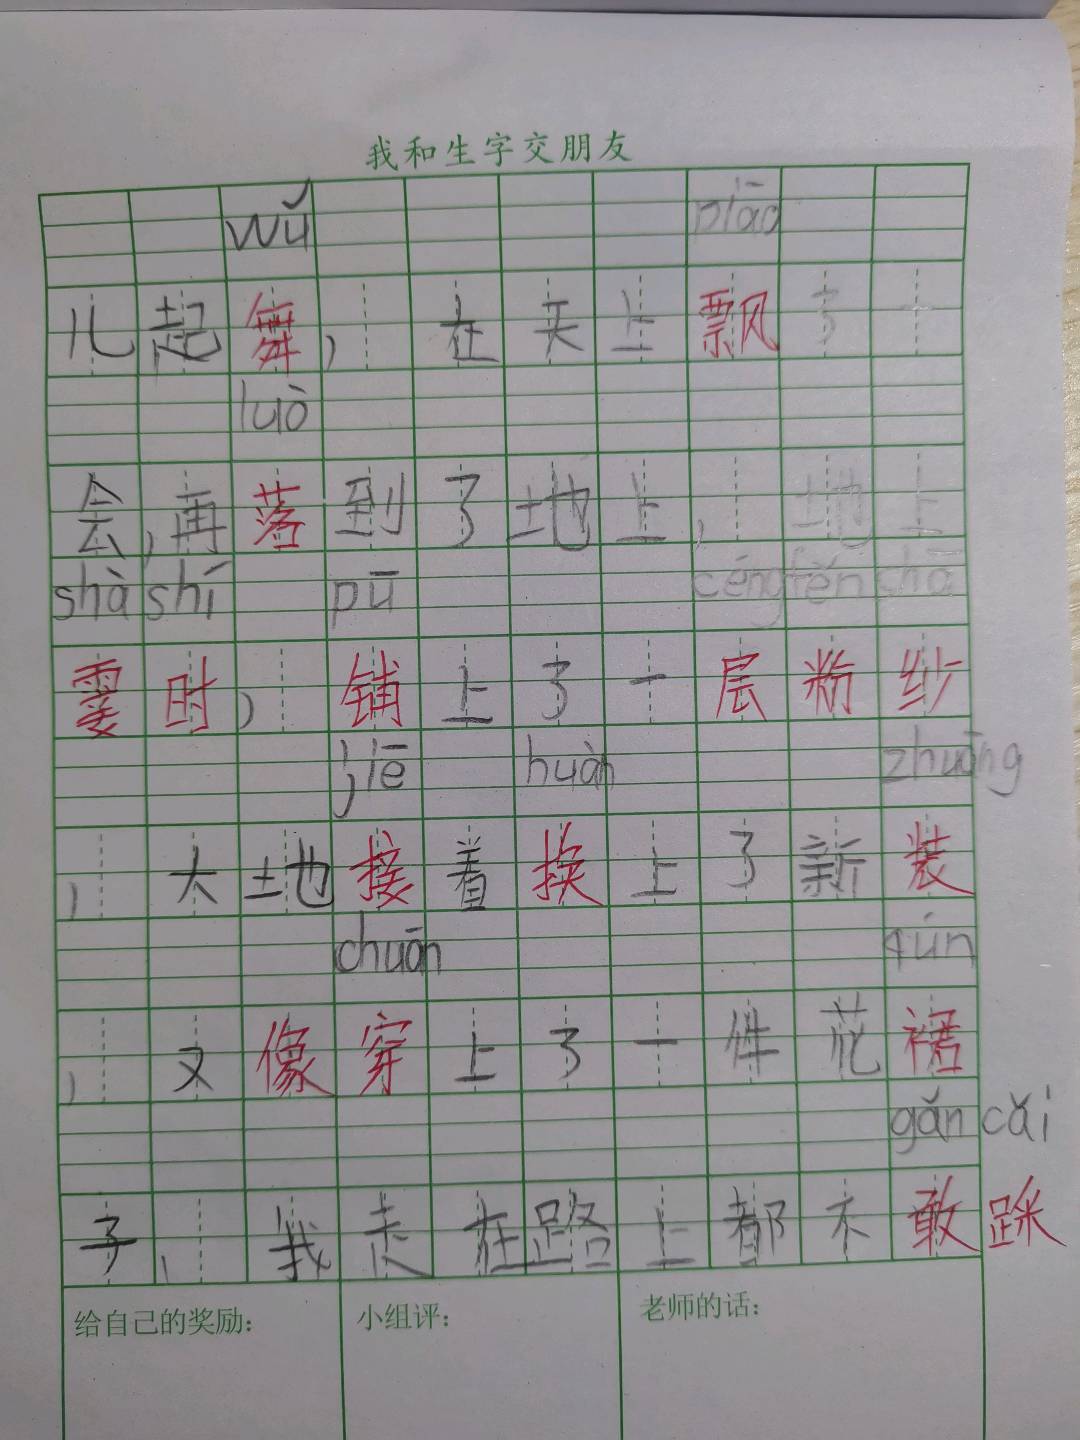 我和生字交朋友
wǔ piāo
儿起舞，在天上飘了一
luò
会，再落到了地上，地上
shà shí pū céng fěn shā
霎时，铺上了一层粉纱
jiē huàn zhuāng
，大地接着换上了新装
chuān qún
，又像穿上了一件花裙
gǎn cǎi
子，我走在路上都不敢踩
给自己的奖励： 小组评： 老师的话：